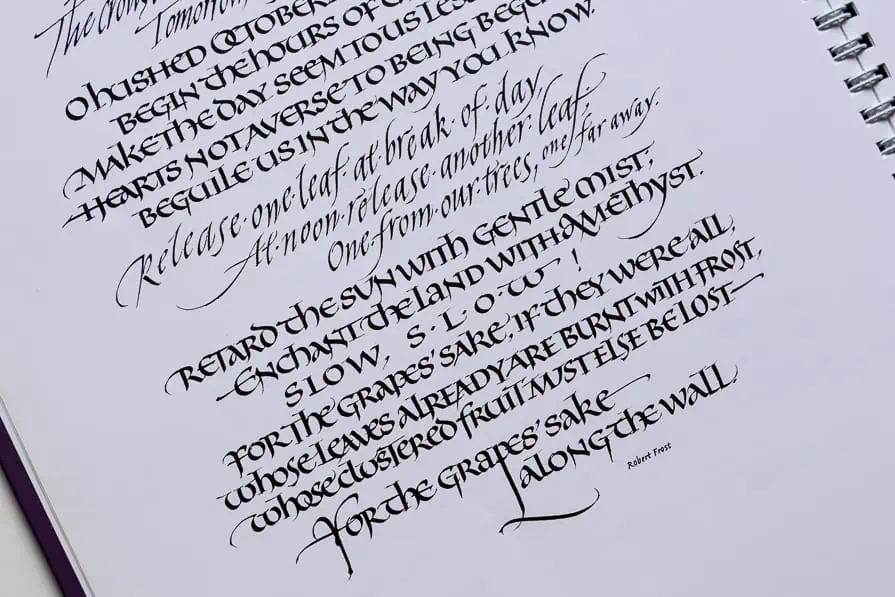 The crows
Tomorrow
O HUSHED OCTOBER
BEGIN the HOURS OF
MAKE THE DAY SEEM TO US LESS
HEARTS NOT AVERSE TO BEING BEGU
BEGUILE US IN the WAY YOU KNOW.
Release·one·leaf·at·break·of·day,
At·noon·release·another·leaf,
One·from·our·trees, one far away.
RETARD THE SUN WITH GENTLE MIST;
ENCHANT THE LAND WITH AMETHYST.
SLOW, S·L·O·W !
FOR THE GRAPES' SAKE, IF THEY WERE ALL,
WHOSE LEAVES ALREADY ARE BURNT WITH FROST,
WHOSE CLUSTERED FRUIT MUST ELSE BE LOST—
FOR THE GRAPES' SAKE
ALONG THE WALL.
Robert Frost